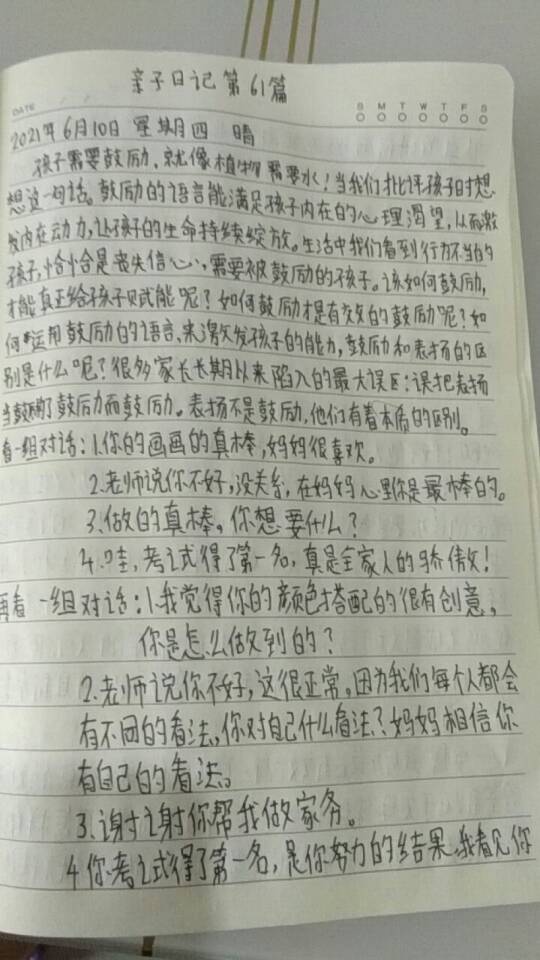 亲子日记第61篇
DATE
S M T W T F S
2021年6月10日 星期四 晴
孩子需要鼓励,就像植物需要水!当我们批评孩子时想
想这一句话。鼓励的语言能满足孩子内在的心理渴望,从而激
发内在动力,让孩子的生命持续绽放。生活中我们看到行为不当的
孩子,恰恰是丧失信心,需要被鼓励的孩子。该如何鼓励,
才能真正给孩子赋能呢?如何鼓励才是有效的鼓励呢?如
何运用鼓励的语言,来激发孩子的能力,鼓励和表扬的区
别是什么呢?很多家长长期以来陷入的最大误区:误把表扬
当鼓励而鼓励。表扬不是鼓励,他们有着本质的区别。
看一组对话:1.你的画画的真棒,妈妈很喜欢。
2.老师说你不好,没关系,在妈妈心里你是最棒的。
3.做的真棒,你想要什么?
4.哇,考试得了第一名,真是全家人的骄傲!
再看一组对话:1.我觉得你的颜色搭配的很有创意,
你是怎么做到的?
2.老师说你不好,这很正常,因为我们每个人都会
有不同的看法,你对自己什么看法?妈妈相信你
有自己的看法。
3.谢谢你帮我做家务。
4.你考试得了第一名,是你努力的结果,我看见你